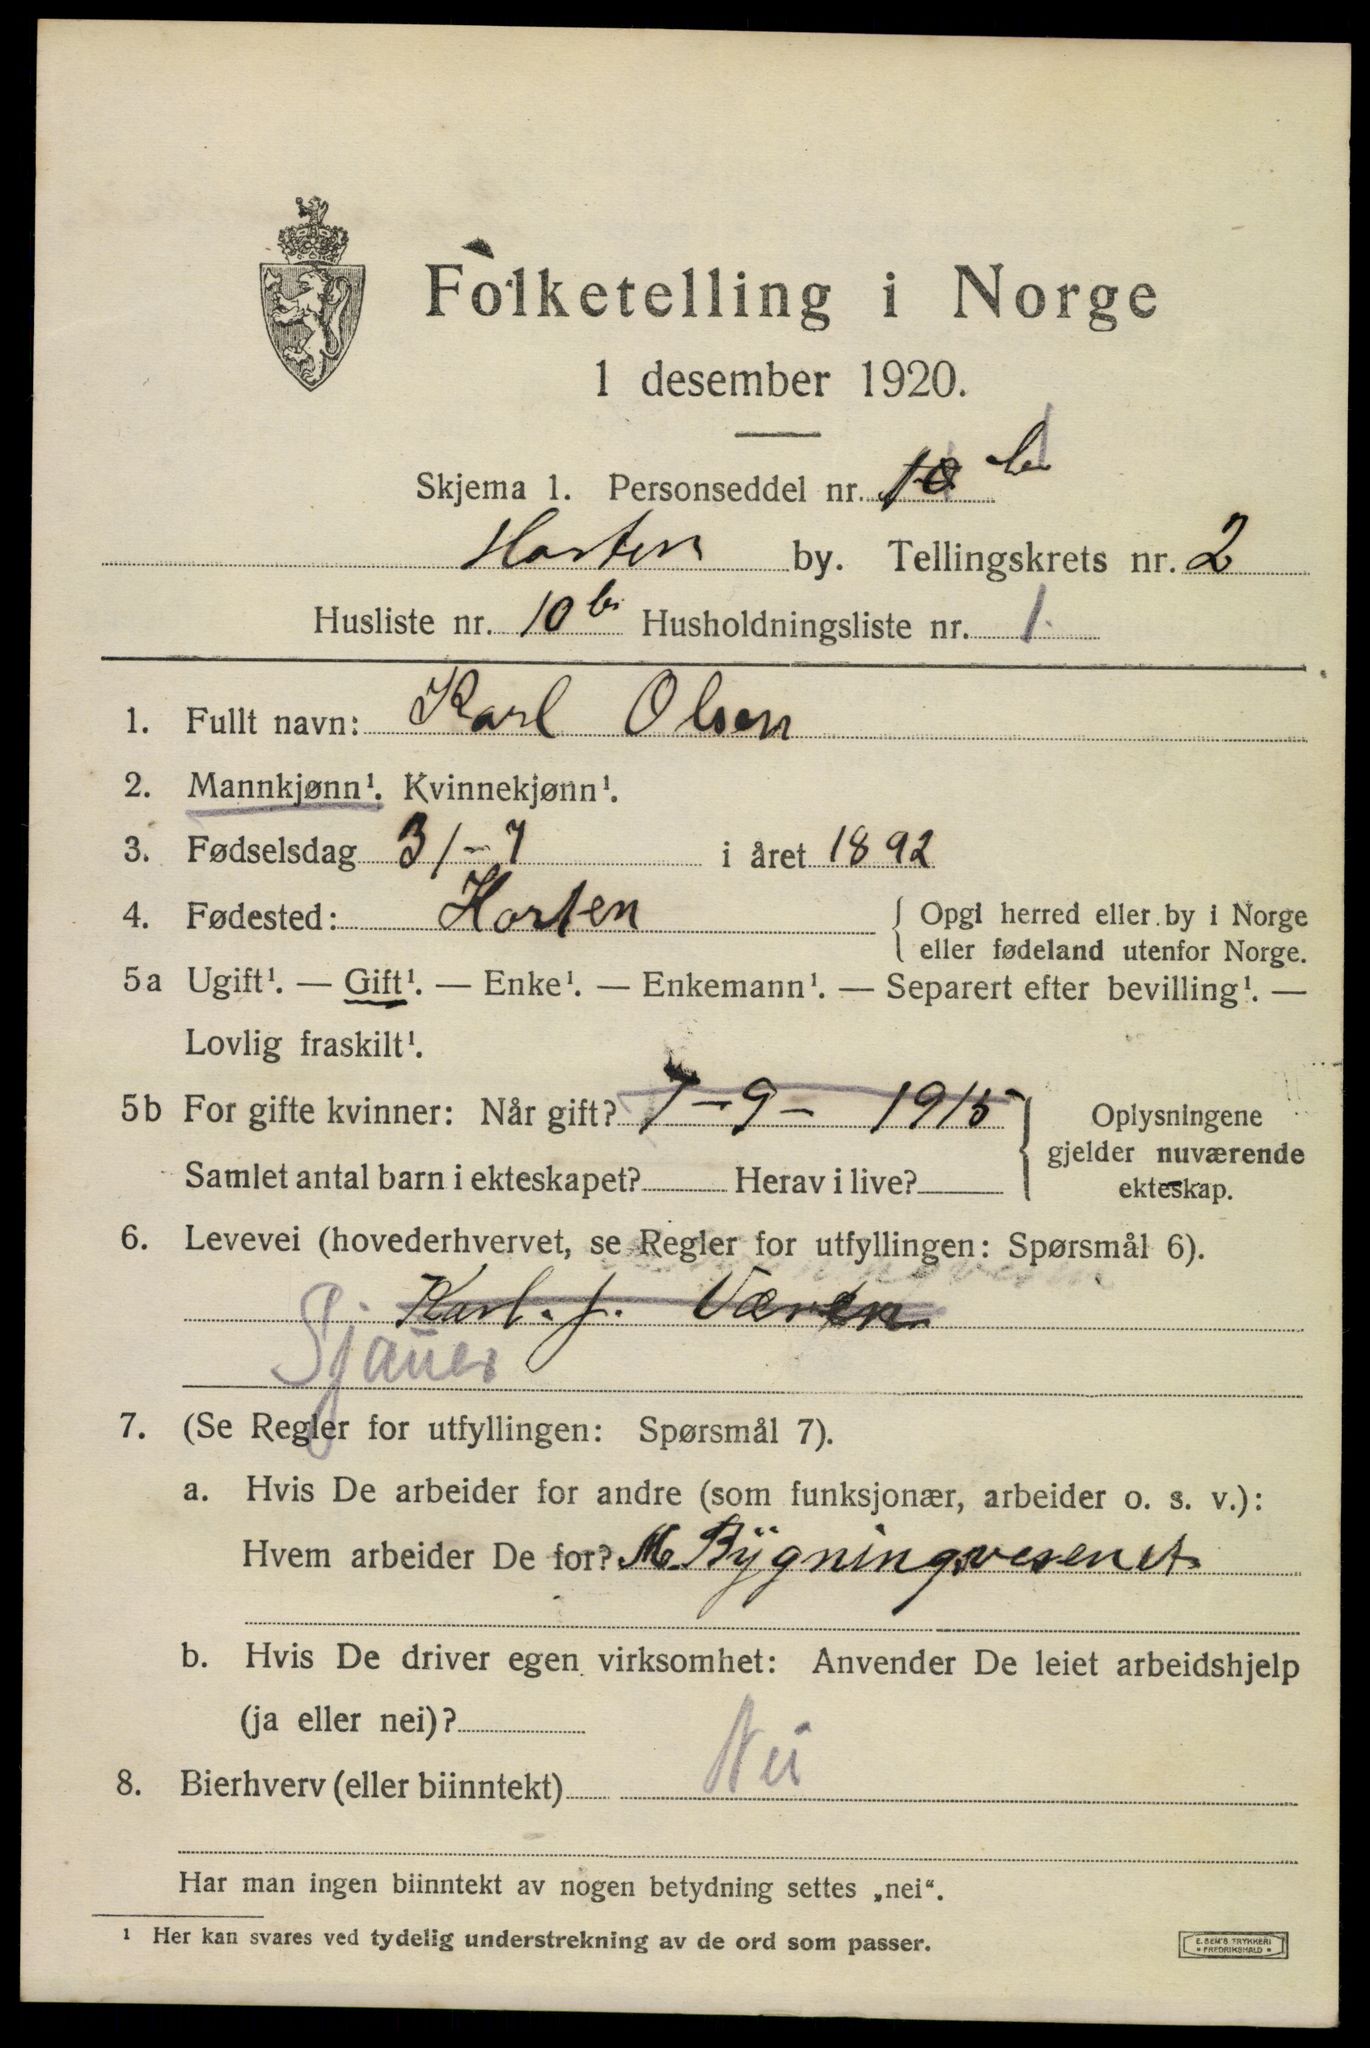 Folketelling i Norge
1 desember 1920.
Skjema 1. Personseddel nr. 1
Horten by. Tellingskrets nr. 2
Husliste nr. 10 b Husholdningsliste nr. 1
1. Fullt navn: Karl Olsen
2. Mannkjønn¹. Kvinnekjønn¹.
3. Fødselsdag 31-7 i året 1892
4. Fødested: Horten { Opgi herred eller by i Norge
eller fødeland utenfor Norge.
5a Ugift¹. — Gift¹. — Enke¹. — Enkemann¹. — Separert efter bevilling¹. —
Lovlig fraskilt¹.
5b For gifte kvinner: Når gift? 7-9- 1915 } Oplysningene
gjelder nuværende
Samlet antal barn i ekteskapet? Herav i live? ekteskap.
6. Levevei (hovederhvervet, se Regler for utfyllingen: Spørsmål 6).
Karl. J. Væren
Sjauer
7. (Se Regler for utfyllingen: Spørsmål 7).
a. Hvis De arbeider for andre (som funksjonær, arbeider o. s. v.):
Hvem arbeider De for? M. Bygningsvesenet
b. Hvis De driver egen virksomhet: Anvender De leiet arbeidshjelp
(ja eller nei)?
8. Bierhverv (eller biinntekt) Nei
Har man ingen biinntekt av nogen betydning settes „nei“.
¹ Her kan svares ved tydelig understrekning av de ord som passer.
E. SEM'S TRYKKERI
FREDRIKSHALD